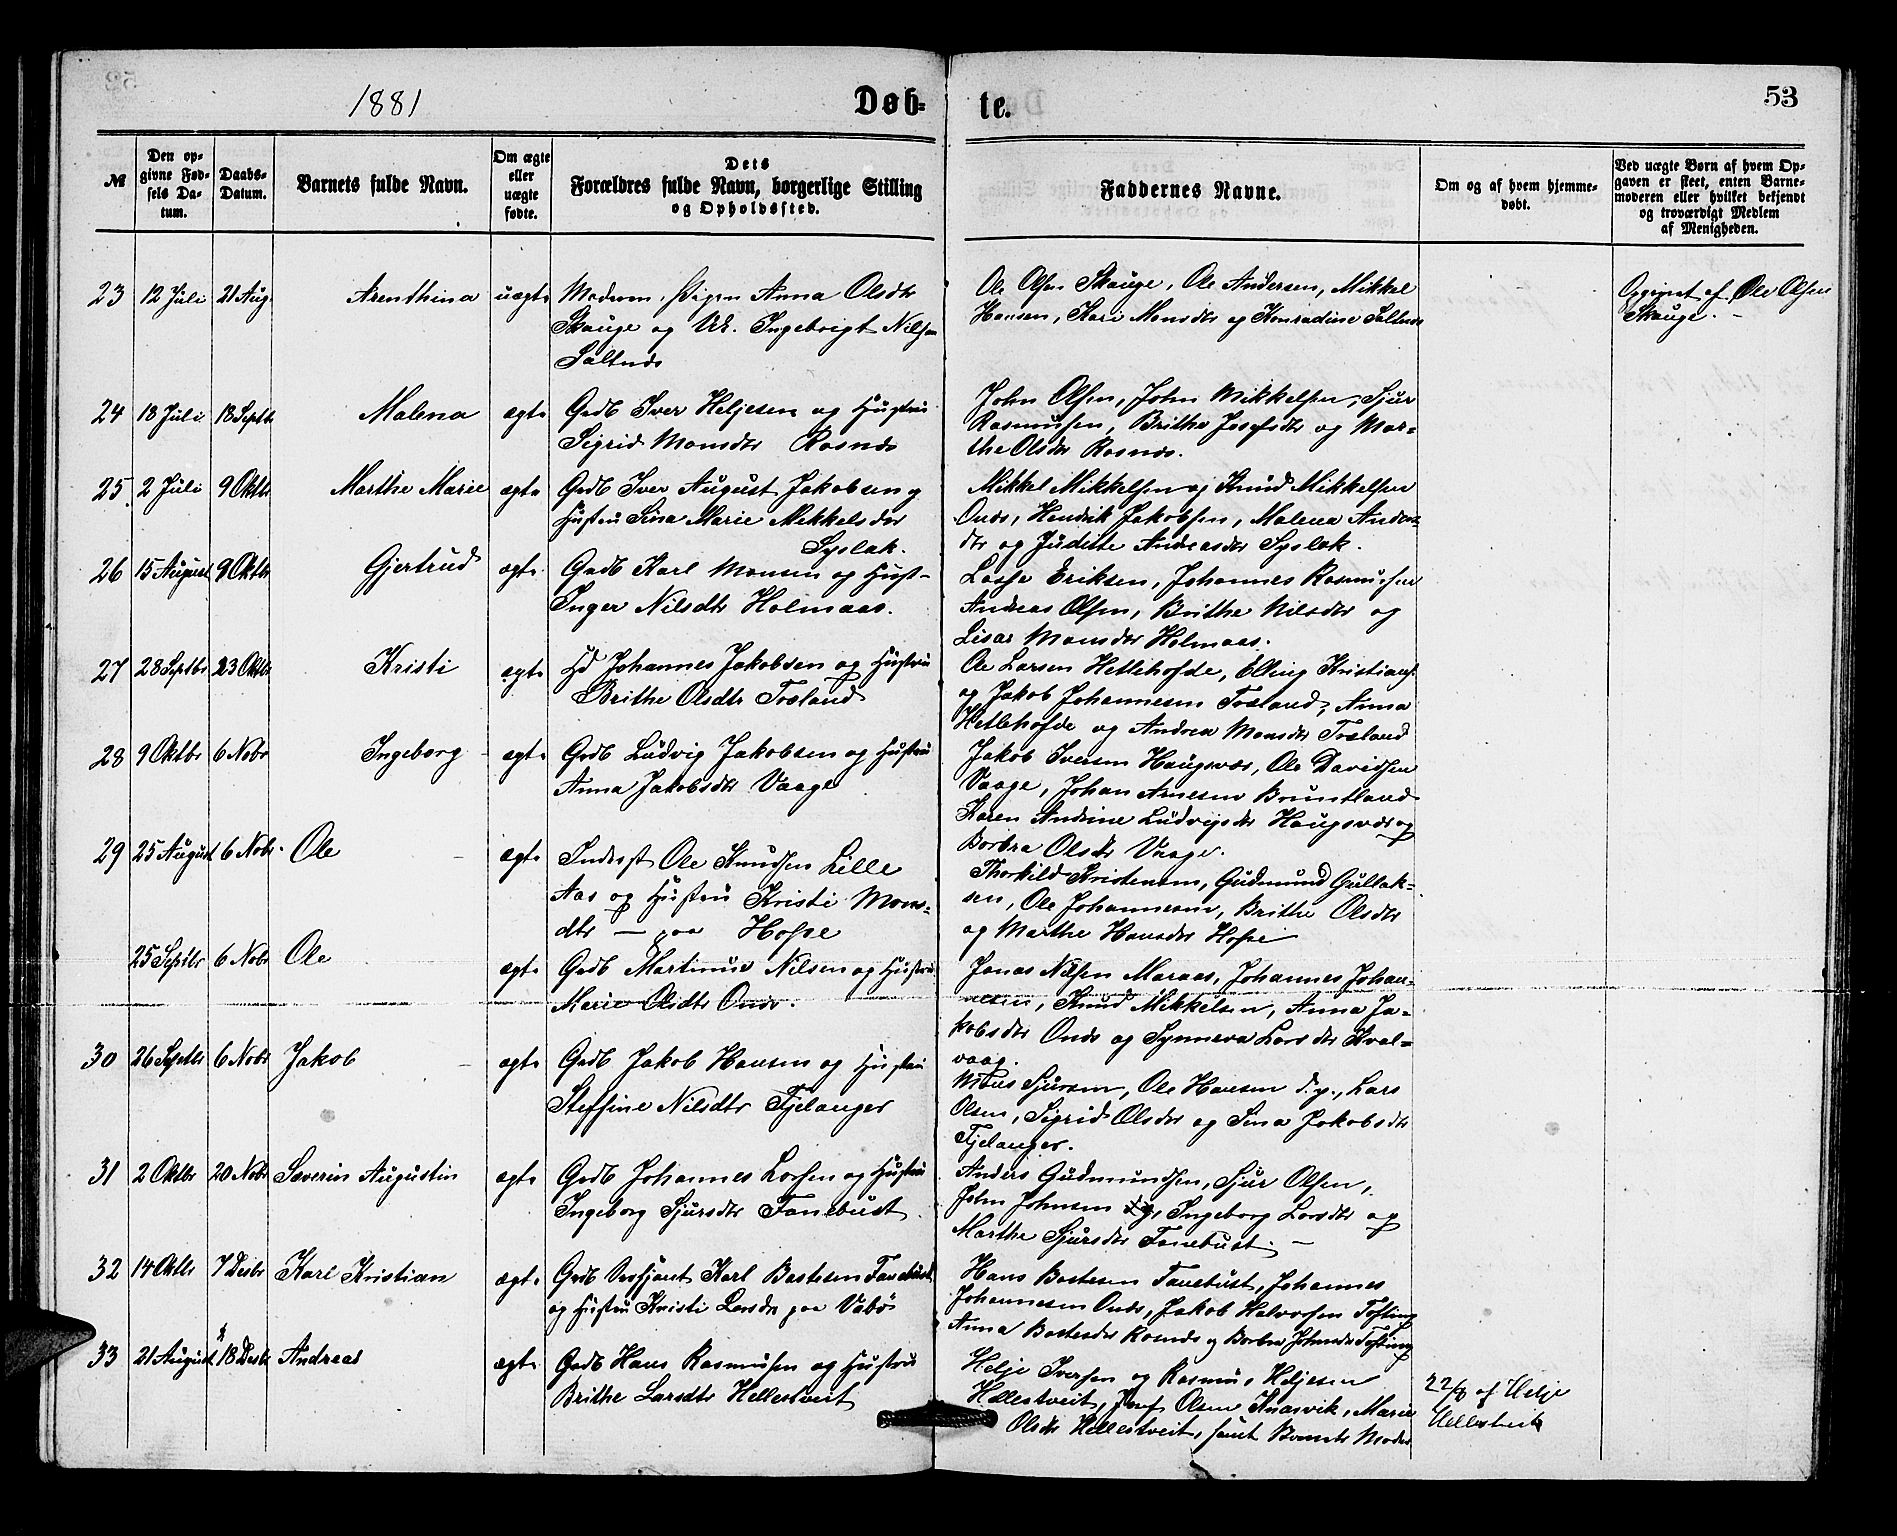 1881
Døb-
te.
53
№
Den op-
givne Fød-
sels Da-
tum.
Daabs-
Datum.
Barnets fulde Navn.
Om ægte
eller
uægte
fødte.
Dets
Forældres fulde Navn, borgerlige Stilling
og Opholdssted.
Faddernes Navne.
Om og af hvem hjemme-
døbt.
Ved uægte Børn af hvem Op-
gaven er skeet, enten Barne-
moderen eller hvilket bekjendt
og troværdigt Medlem
af Menigheden.
23 12 Juli 21 Aug. Arenthina uægte
Moderen: Pigen Anna Olsdtr
Skauge og Uk. Ingebrigt Nilsen
Saltnæs
Ole Olsen Skauge, Ole Andersen, Mikkel
Hansen, Kari Monsdtr og Konradine Saltnæs
Opgivet af Ole Olsen
Skauge.
24 18 Juli 18 Septb Malena ægte
Gdb Iver Heljesen og Hustru
Sigrid Monsdtr Rosnæs
John Olsen, John Mikkelsen, Sjur
Rasmussen, Brithe Josefsdtr og Mar-
the Olsdtr Rosnæs.
25 2 Juli 9 Oktbr Marthe Marie ægte
Gdb Iver August Jakobsen og
Hustru Sina Marie Mikkelsdtr
Syslak.
Mikkel Mikkelsen og Knud Mikkelsen
Onæs, Hendrik Jakobsen, Malena Anders-
dtr og Juditte Andreasdtr Syslak.
26 15 August 9 Oktbr Gjertrud ægte
Gdb Karl Monsen og Hust-
Inger Nilsdtr Holmaas.
Lasse Eriksen, Johannes Rasmussen
Andreas Olsen, Brithe Nilsdtr og
Lisa Monsdtr Holmaas.
27 28 Septbr 23 Oktbr Kristi ægte
Hd Johannes Jakobsen og Hustru
Brithe Olsdtr Tosland
Ole Larsen Hetlehofde, Elling Kristians.
og Jakob Johannesen Tosland, Anna
Hetlehofde og Andrea Monsdtr Tosland
28 9 Oktbr 6 Nobr Ingeborg ægte
Gdb Ludvig Jakobsen og Hustru
Anna Jakobsdtr Vaage
Jakob Iversen Haugsvær, Ole Davidsen
Vaage, Johan Arnesen Bruntland
Karen Andrine Ludvigsdtr Haugsvær og
Borbra Olsdtr Vaage.
29 25 August 6 Nobr. Ole ægte
Inderst Ole Knudsen Lille
Aas og Hustru Kristi Mons-
dtr — paa Hope
Thorkild Kristensen, Gudmund Gullak-
sen, Ole Johannesen, Brithe Olsdtr
og Marthe Hansdtr Hope
25 Septbr 6 Nobr Ole ægte
Gdb Martinus Nilsen og Hustru
Marie Olsdtr Onæs.
Jonas Nilsen Maraas, Johannes Johan-
nesen, Knud Mikkelsen, Anna Ja-
kobsdtr Onæs og Synneva Larsdtr Kval-
vaag.
30 26 Septbr 6 Nobr Jakob ægte
Gdb Jakob Hansen og Hustru
Steffine Nilsdtr Fjelanger
Mons Sjursen, Ole Hansen d. y., Lars
Olsen, Sigrid Olsdtr og Sina Jakobsdtr
Fjelanger.
31 2 Oktbr 20 Nobr Severin Augustin ægte
Gdb Johannes Larsen og Hustru
Ingeborg Sjursdtr Fonebust.
Anders Gudmundsen, Sjur Olsen,
John Johnsen Ingeborg Larsdtr og
Marthe Sjursdtr Fonebust. —
32 14 Oktbr 7 Desbr Karl Kristian ægte
Gdb Karl Bastesen Fonebust
og Hustru Kristi Larsdtr paa Vabø
Hans Bastesen Fonebust, Johannes
Johannesen Onæs, Jakob Halvorsen Tofting
Anna Bastesdtr Rosnæs og Borbra Johnsdtr Tofting
33 21 August 18 Desbr Andreas ægte
Gdb Hans Rasmussen og Hustru
Brithe Larsdtr Hellestveit
Helje Iversen og Rasmus Heljesen
Hellestveit, Josef Olsen Knarvik, Marie
Olsdtr Hellestveit, samt Barnets Moder
22/8 af Helje
Hellestveit